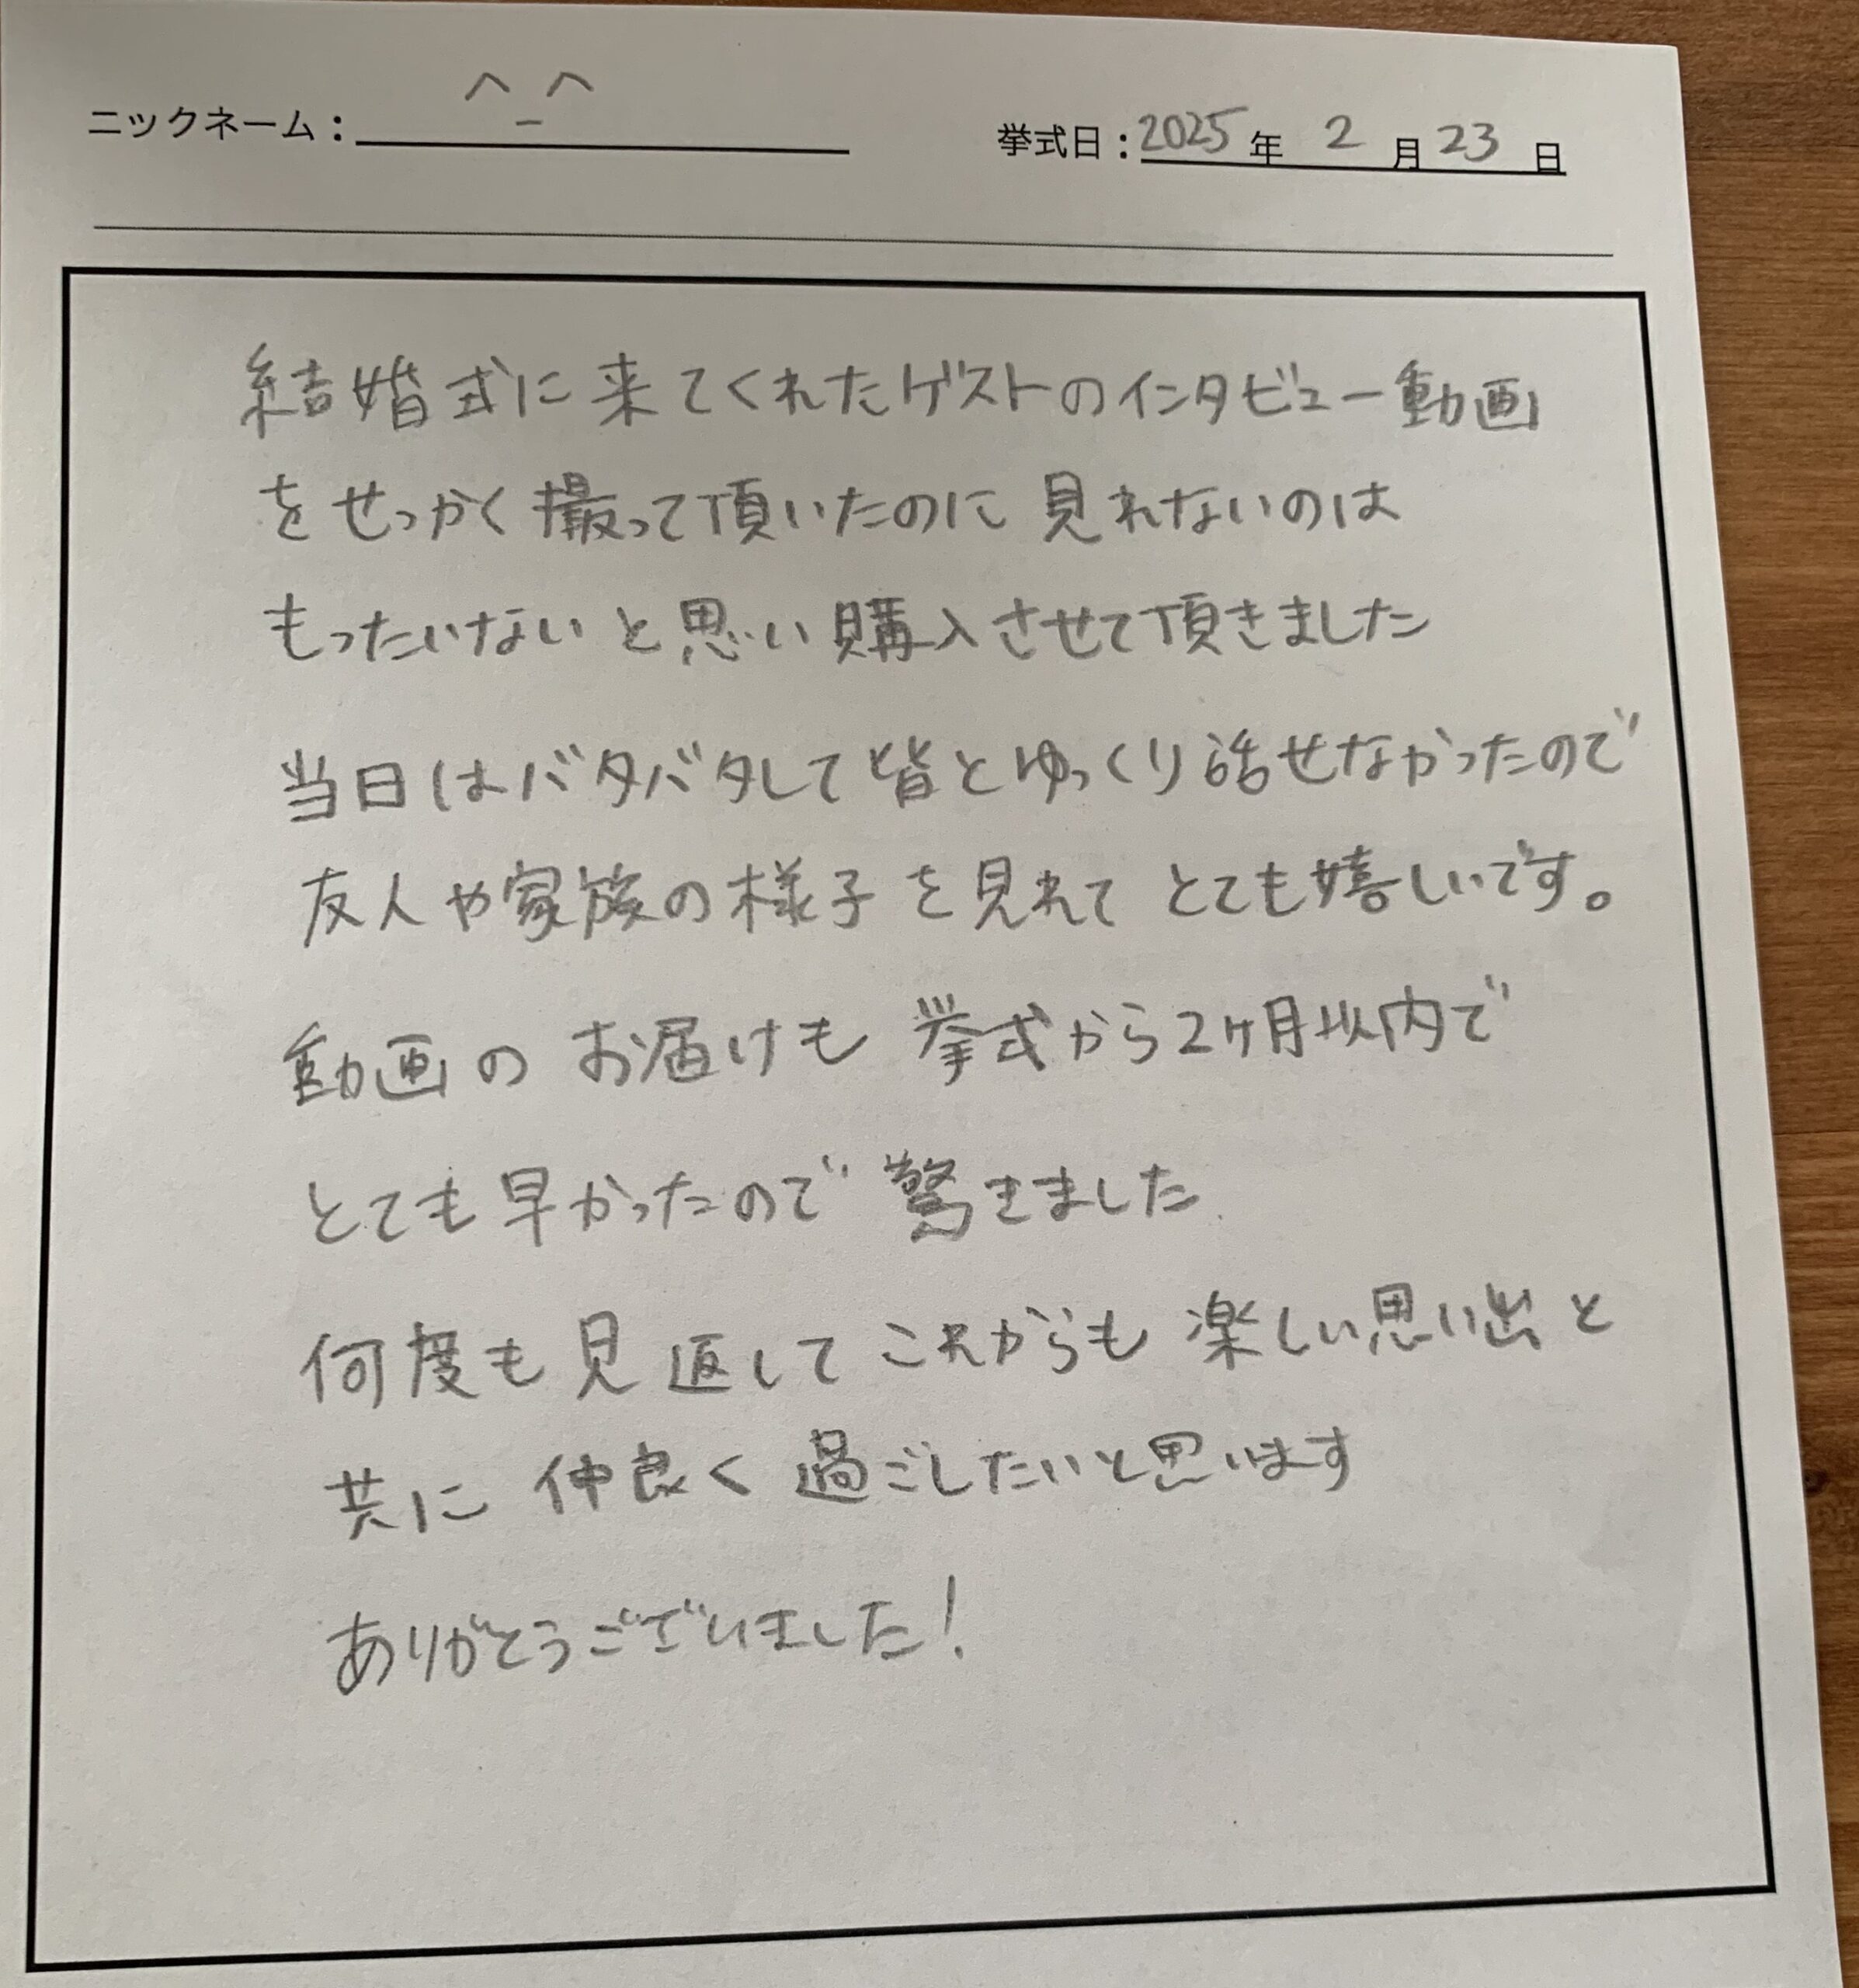 ニックネーム： ^_^
挙式日：2025年 2月23日
結婚式に来てくれたゲストのインタビュー動画
をせっかく撮って頂いたのに見れないのは
もったいないと思い購入させて頂きました
当日はバタバタして皆とゆっくり話せなかったので
友人や家族の様子を見れてとても嬉しいです。
動画のお届けも挙式から2ヶ月以内で
とても早かったので驚きました
何度も見返してこれからも楽しい思い出と
共に仲良く過ごしたいと思います
ありがとうございました！